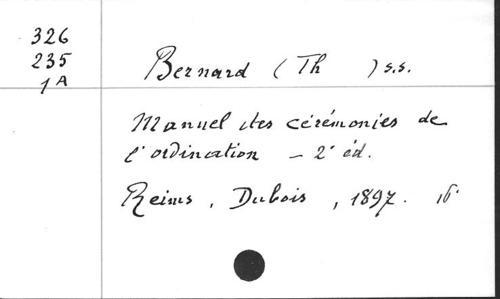 326
235
1A
Bernard (Th ) s.s.
Manuel des cérémonies de
l'ordination - 2e éd.
Reims, Dubois, 1897. 16°